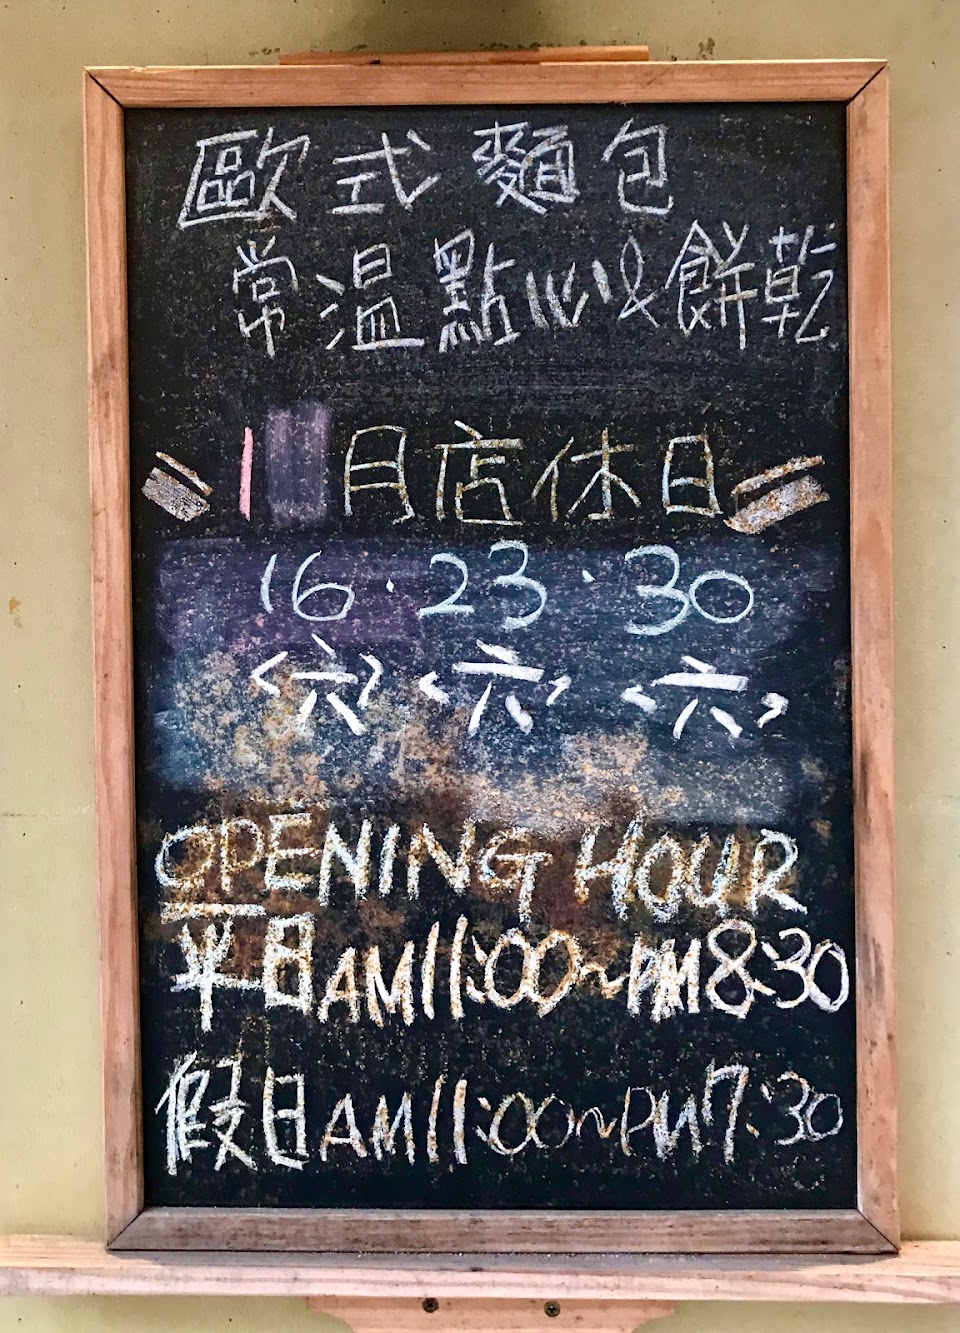 歐式麵包
常溫點心&餅乾
1月店休日
16.23.30
<六> <六> <六>
OPENING HOUR
平日AM11:00~PM8:30
假日AM11:00~PM7:30